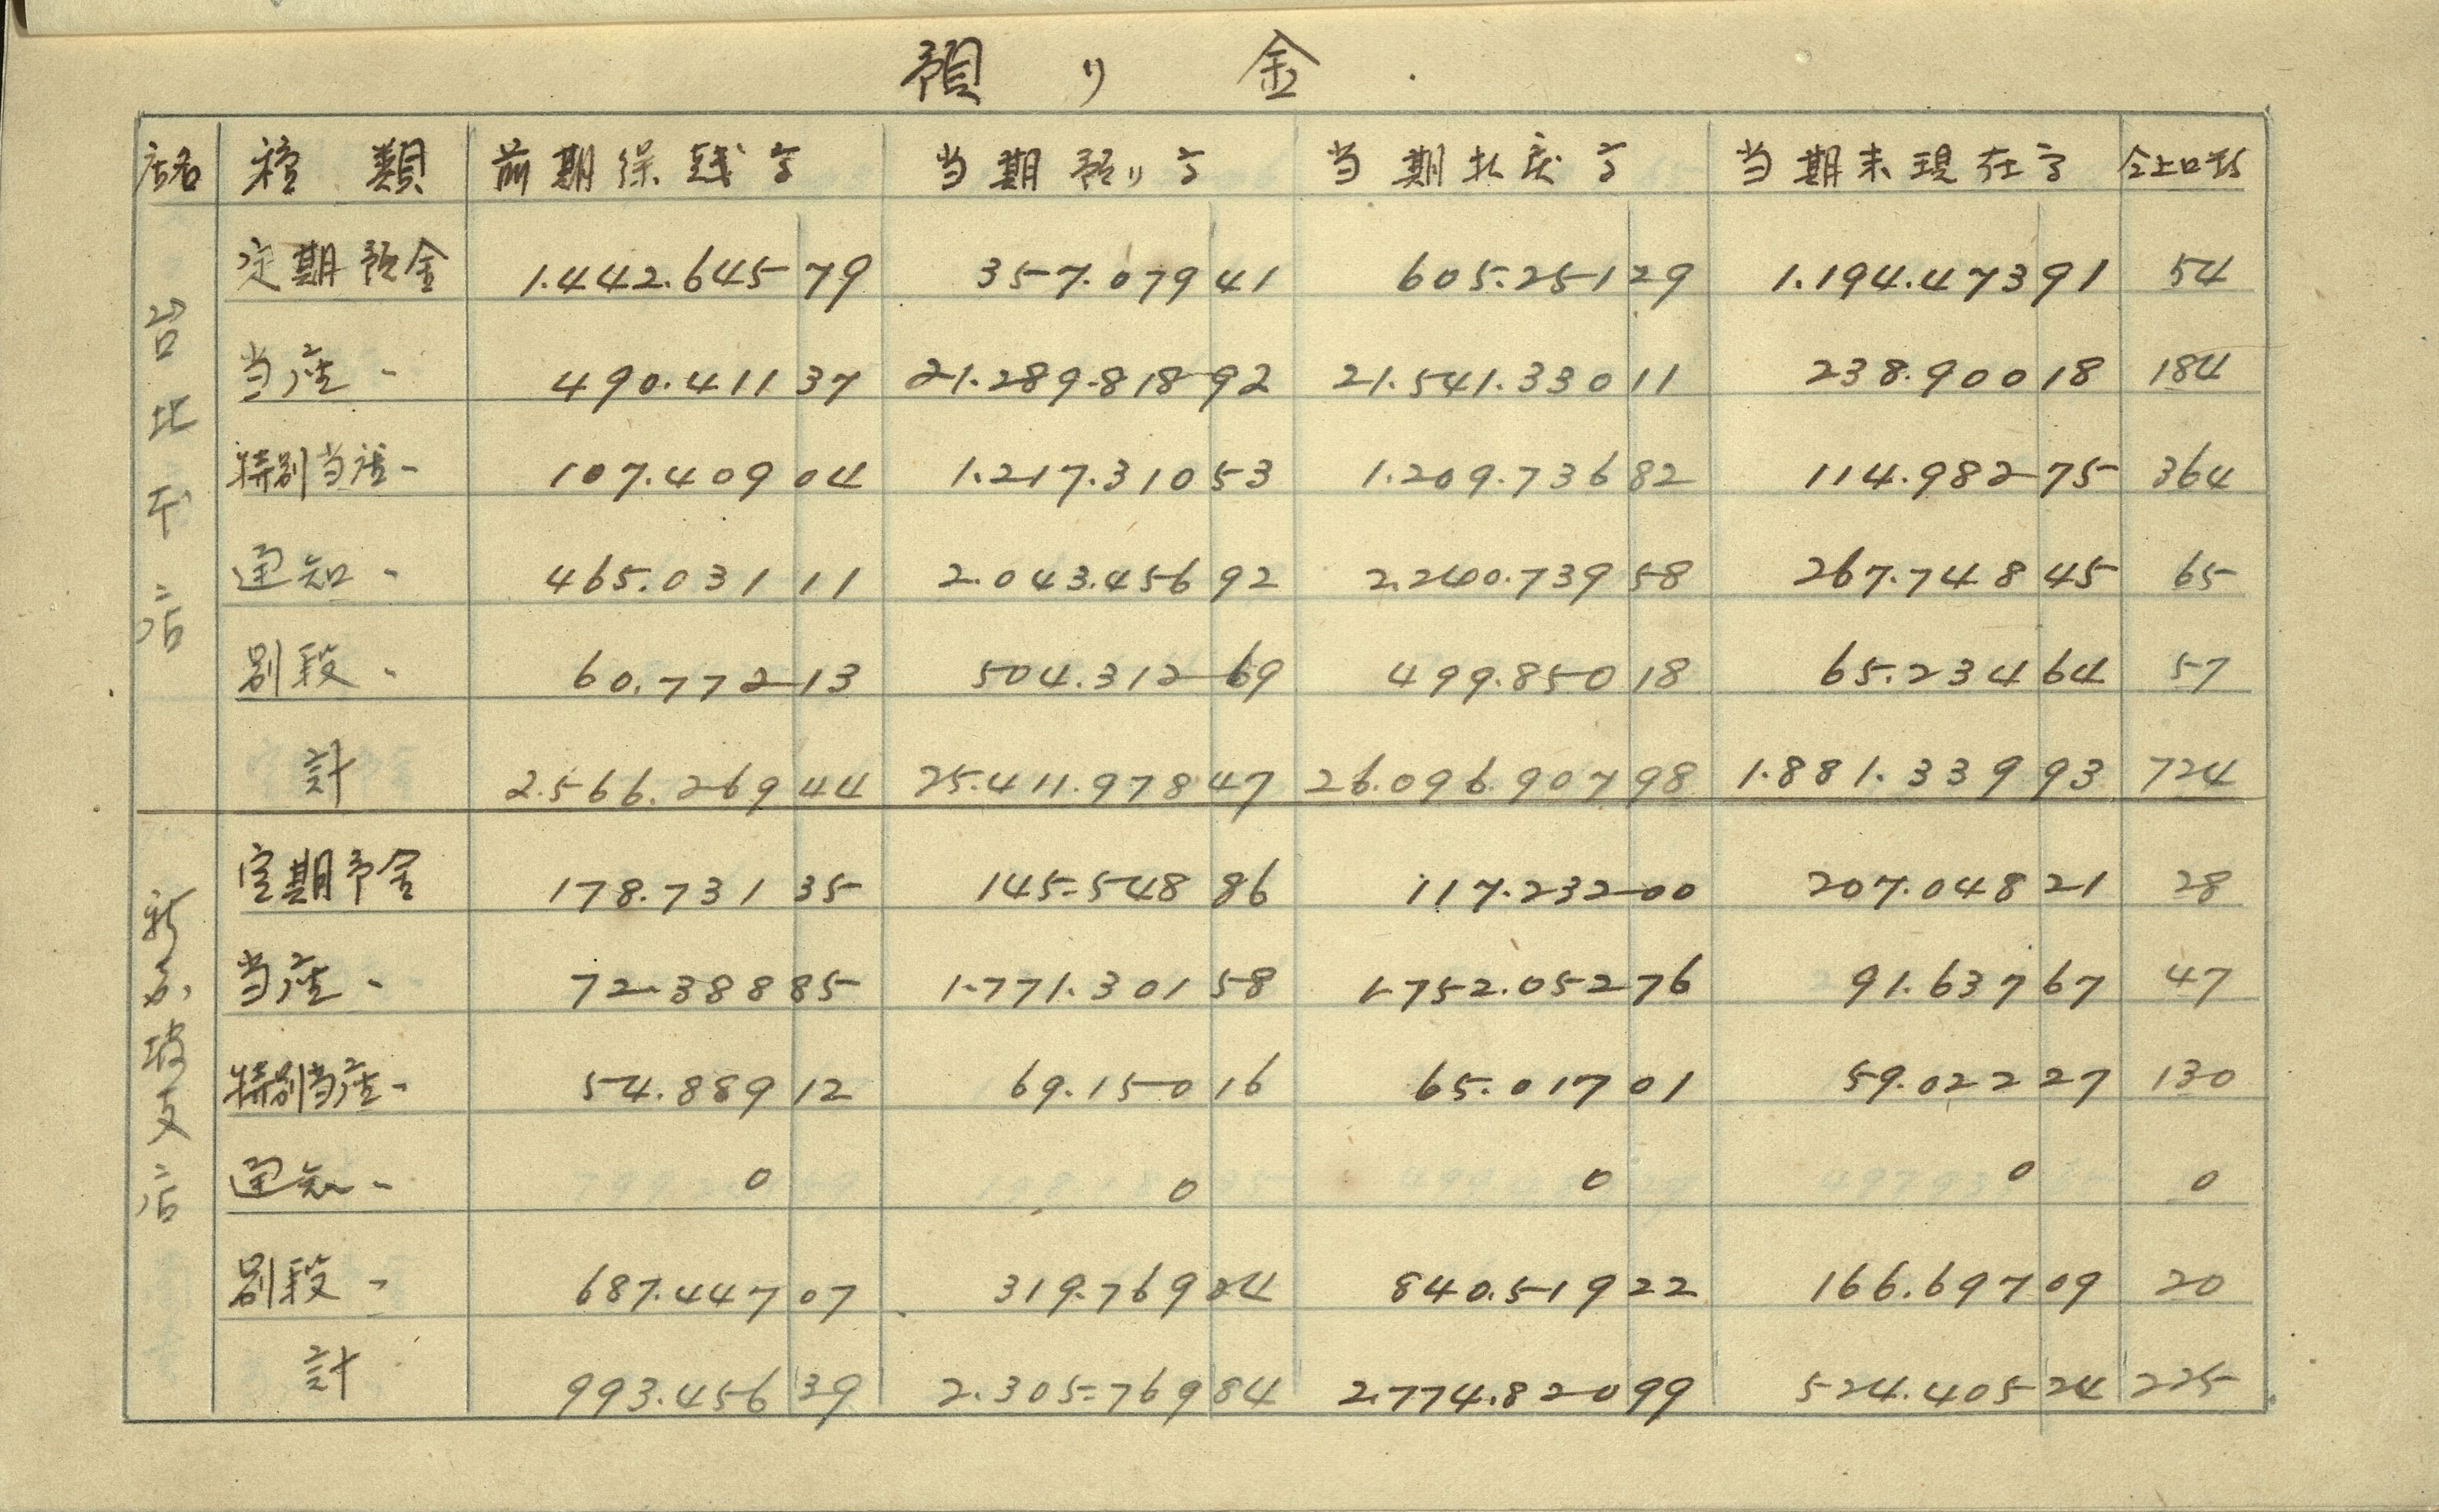 預り金
店名 種類 前期繰越高 当期預り高 当期払戻高 当期末現在高 仝上口数
台北支店
定期預金 1.442.645 79 357.079 41 605.251 29 1.194.473 91 54
当座〃 490.411 37 21.289.818 92 21.541.330 11 238.900 18 184
特別当座〃 107.409 04 1.217.310 53 1.209.736 82 114.982 75 364
通知〃 465.031 11 2.043.456 92 2.240.739 58 267.748 45 65
別段〃 60.772 13 504.312 69 499.850 18 65.234 64 57
計 2.566.269 44 25.411.978 47 26.096.907 98 1.881.339 93 724
新嘉坡支店
定期予金 178.731 35 145.548 86 117.232 00 207.048 21 28
当座〃 72.388 85 1.771.301 58 1.752.052 76 91.637 67 47
特別当座〃 54.889 12 69.150 16 65.017 01 59.022 27 130
通知〃 0 0 0 0 0
別段〃 687.447 07 319.769 24 840.519 22 166.697 09 20
計 993.456 39 2.305.769 84 2.774.820 99 524.405 24 225